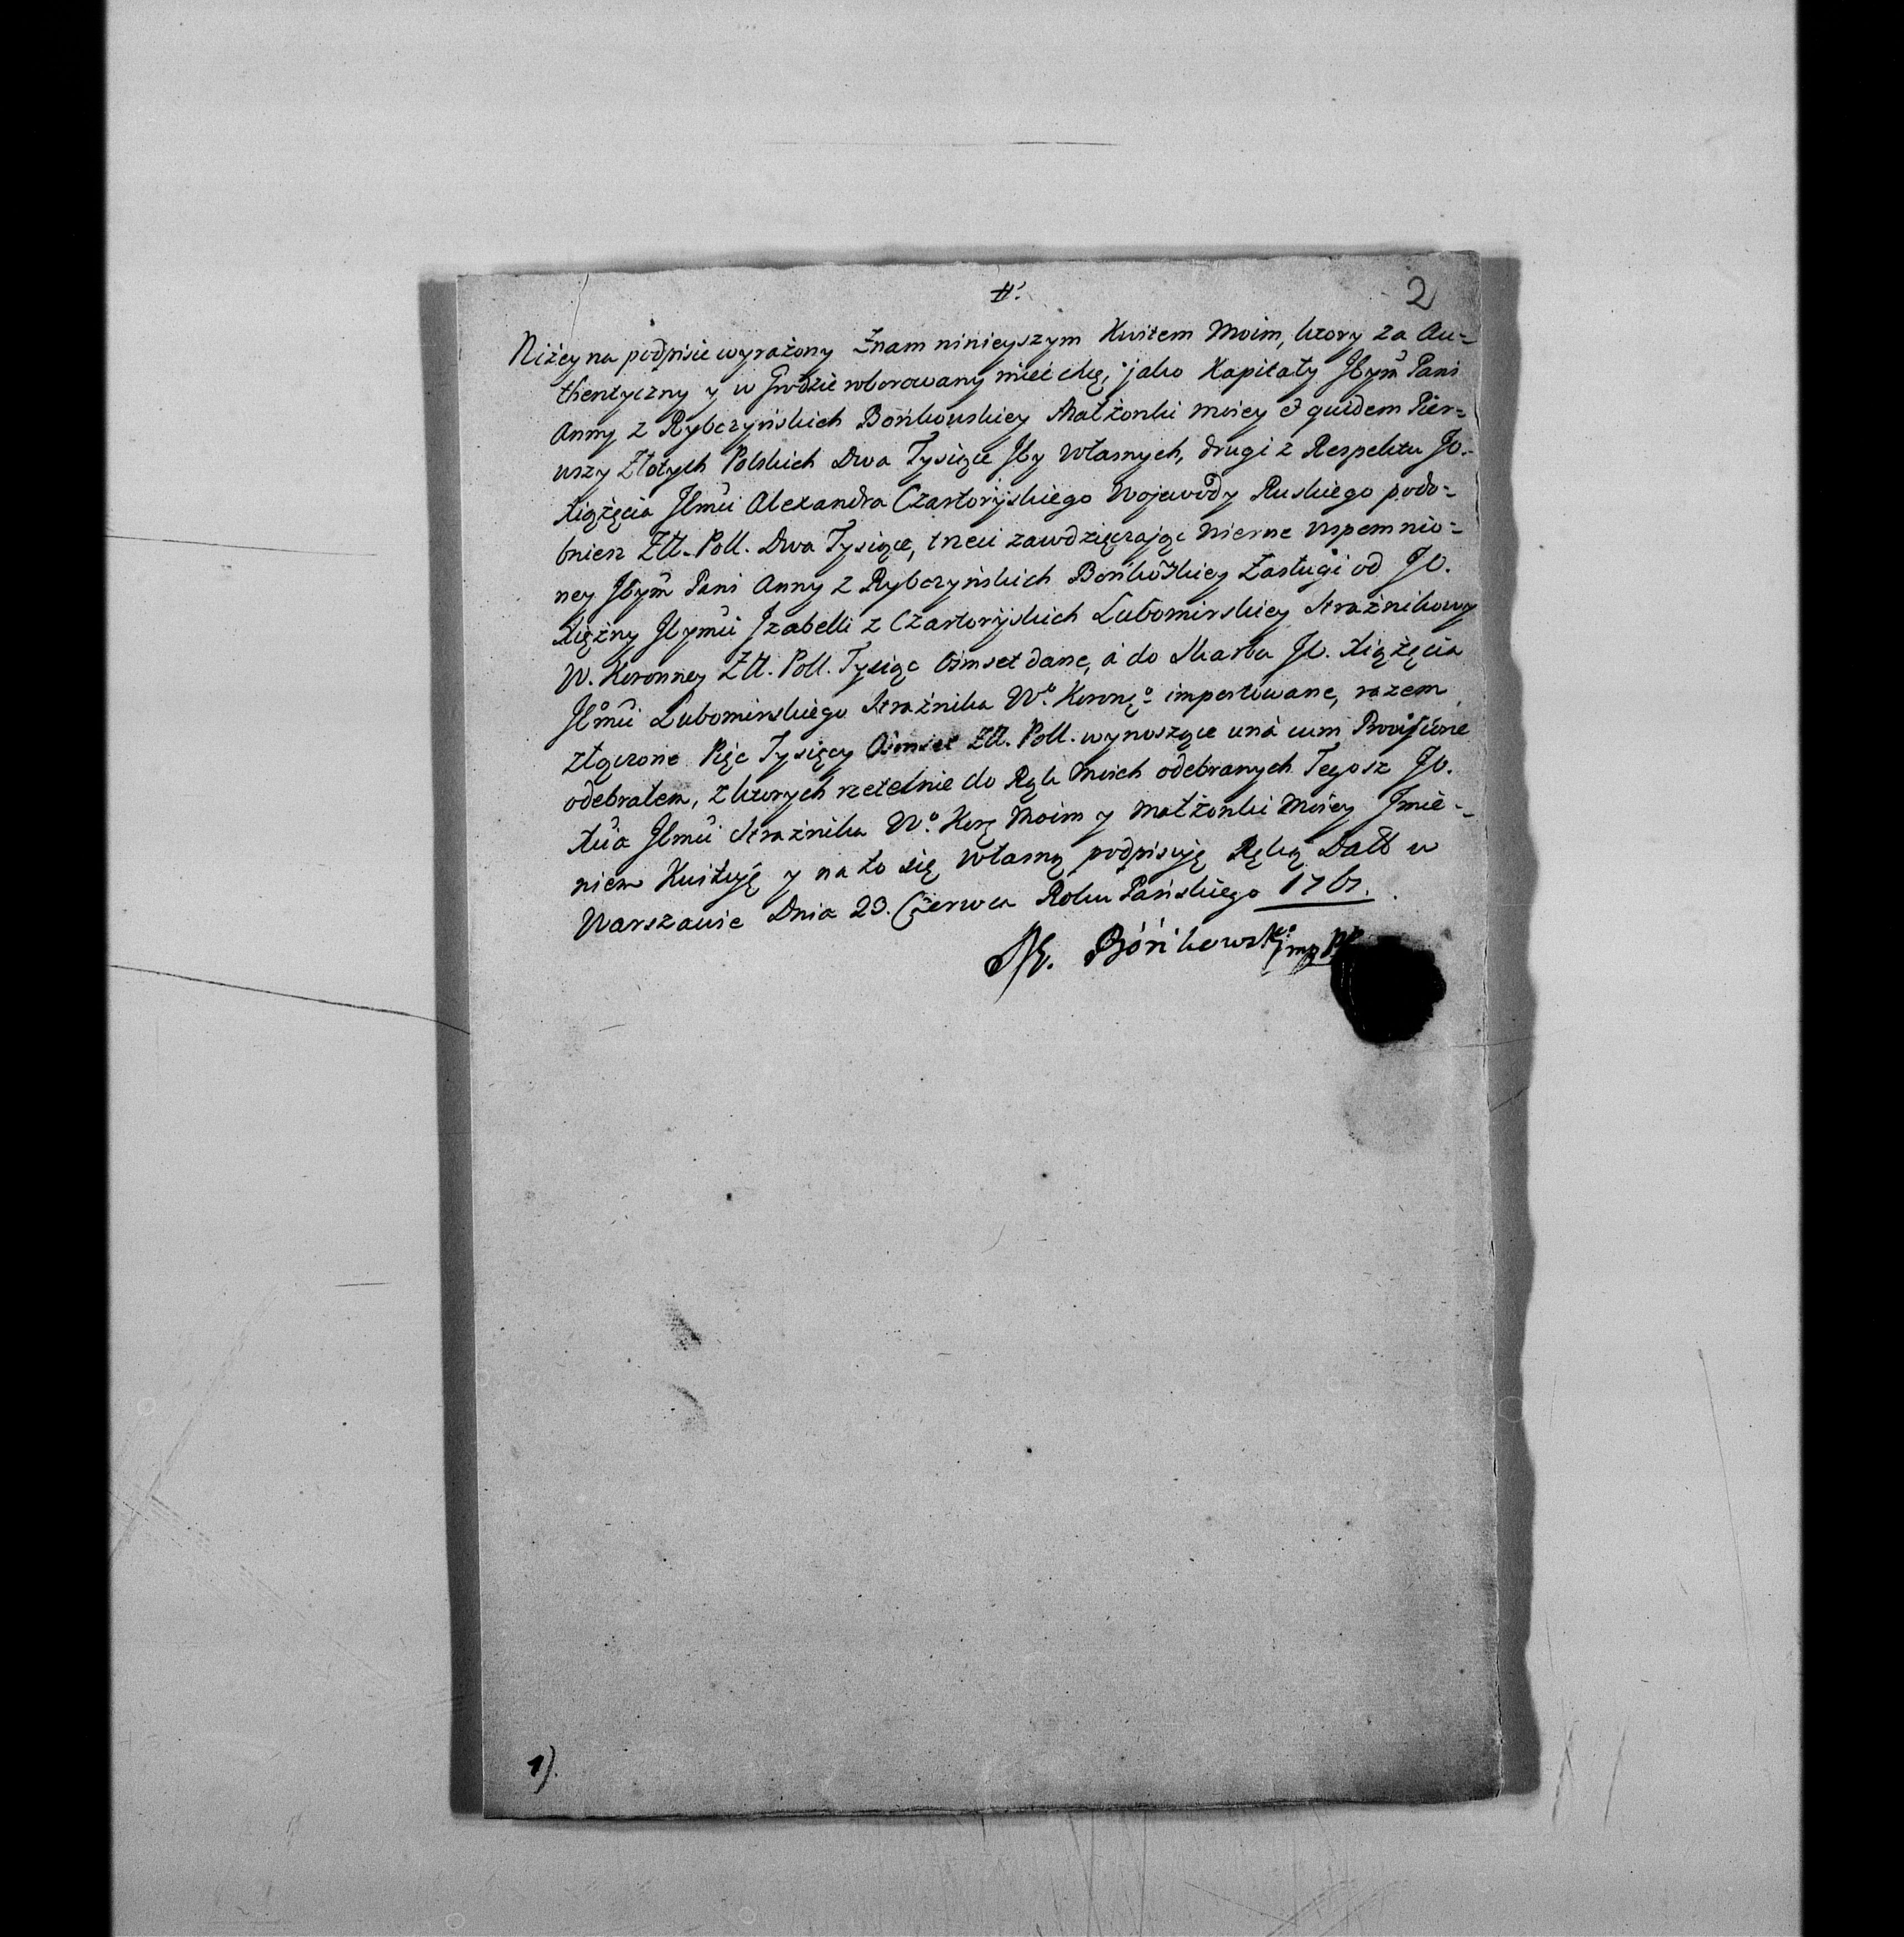 2
Niżey na podpisie wyrażony Znam ninieyszym Kwitem Moim, ktory za Au-
thentyczny y w Grodzie roborowany mieć chcę, jako Kapitały Jeym Pani
Anny z Rybczyńskich Bońkowskiey Małżonki moiey et quidem Pier-
wszy Złotych Polskich Dwa Tysiące Jey własnych, drugi z Respektu Jo.
Xiążęcia Jłmci Alexandra Czartoryskiego Wojewody Ruskiego podo-
bnież Złł. Poll. Dwa Tysiące, trzeci zawdzięczając wierne wspomnio-
ney Jeym Pani Anny z Rybczyńskich Bońkoskiey Zasługi od Jo.
Xiężny Jeymci Jzabelli z Czartoryskich Lubomirskiey Strażnikowy
W. Koronney Złł. Poll. Tysiąc Ośmset dane, á do Skarbu Jo. Xiążęcia
Jłmci Lubomirskiego Strażnika Wo. Korongo. importowane, razem
złączone Pięc Tysięcy Ośmset Złł. Poll. wynoszące unà cum Provisione
odebrałem, z ktorych rzetelnie do Rąk Moich odebranych Tegosz Jo.
Xcia Jłmci Strażnika Wo. Korg Moim y Małżonki Moiey Jmie-
niem Kwituję y na to się własną podpisuję Ręką Datt w
Warszawie Dnia 23. Czerwca Roku Pańskiego 1761.
Bóńkowski mp
1).